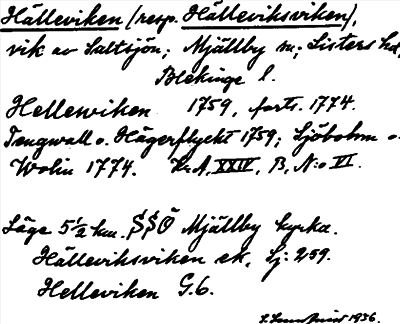 Hälleviken (resp. Hälleviksviken),
vik av Saltsjön; Mjällby sn; Listers hd,
Blekinge l.
Hellewiken 1759, forts. 1774.
Tengwall o. Hägerflycht 1759; Sjöbohm o.
Wolin 1774. Kr.A, XXIV, B, N:o VI.
Läge 5½ km. SSÖ Mjällby kyrka.
Hälleviksviken ek. Sj: 259.
Helleviken G.6.
1936.